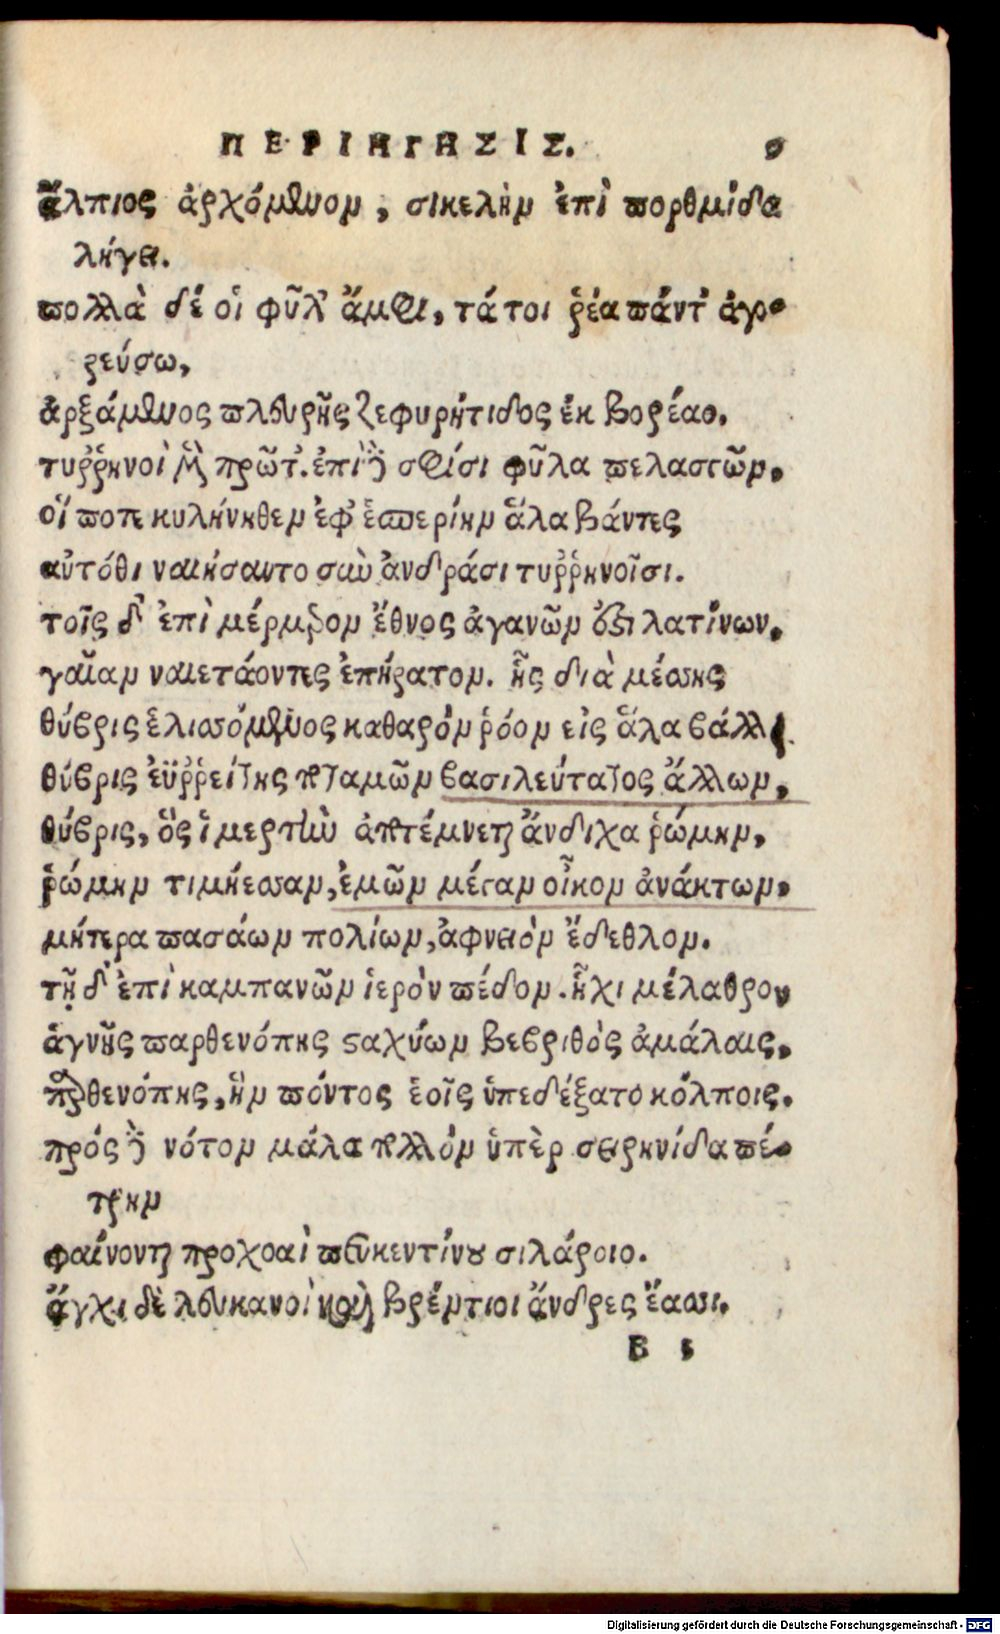 ΠΕΡΙΗΓΗΣΙΣ. 9
ἄλπιος ἀρχόμενον, σικελὴν ἐπὶ πορθμίδα
λήγει.
πολλὰ δέ οἱ φῦλ' ἄμφι, τά τοι ῥέα πάντ' ἀγο-
ρεύσω,
ἀρξάμενος πλευρῆς ζεφυρήτιδος ἐκ βορέαο.
τυῤῥηνοὶ μὲν πρῶτ'. ἐπὶ δὲ σφίσι φῦλα πελασγῶν,
οἵ ποτε κυλήνηθεν ἐφ' ἑσπερίην ἅλα βάντες
αὐτόθι ναιήσαντο σὺν ἀνδράσι τυῤῥηνοῖσι.
τοῖς δ' ἐπὶ μέρμερον ἔθνος ἀγανῶν ὀξι λατίνων,
γαῖαν ναιετάοντες ἐπήρατον. ἧς διὰ μέσσης
θύβρις ἑλισσόμενος καθαρὸν ῥόον εἰς ἅλα βάλλει.
θύβρις ἐϋῤῥείτης ποταμῶν βασιλεύτατος ἄλλων,
θύβρις, ὃς ἱμερτὴν ἀποτέμνεται ἄνδιχα ῥώμην,
ῥώμην τιμήεσσαν, ἐμῶν μέγαν οἶκον ἀνάκτων,
μήτερα πασάων πολίων, ἀφνειὸν ἔδεθλον.
τῇ δ' ἐπὶ καμπανῶν ἱερὸν πέδον. ἧχι μέλαθρον
ἁγνῆς παρθενόπης σταχύων βεβριθὸς ἀμάλαις,
παρθενόπης, ἣν πόντος ἑοῖς ὑπεδέξατο κόλποις.
πρὸς δὲ νότον μάλα πολλὸν ὑπὲρ σειρηνίδα πέ-
τρην
φαίνονται προχοαὶ πευκεντίνου σιλάροιο.
ἄγχι δὲ λευκανοὶ καὶ βρέντιοι ἄνδρες ἔασσι,
B 5
Digitalisierung gefördert durch die Deutsche Forschungsgemeinschaft - DFG